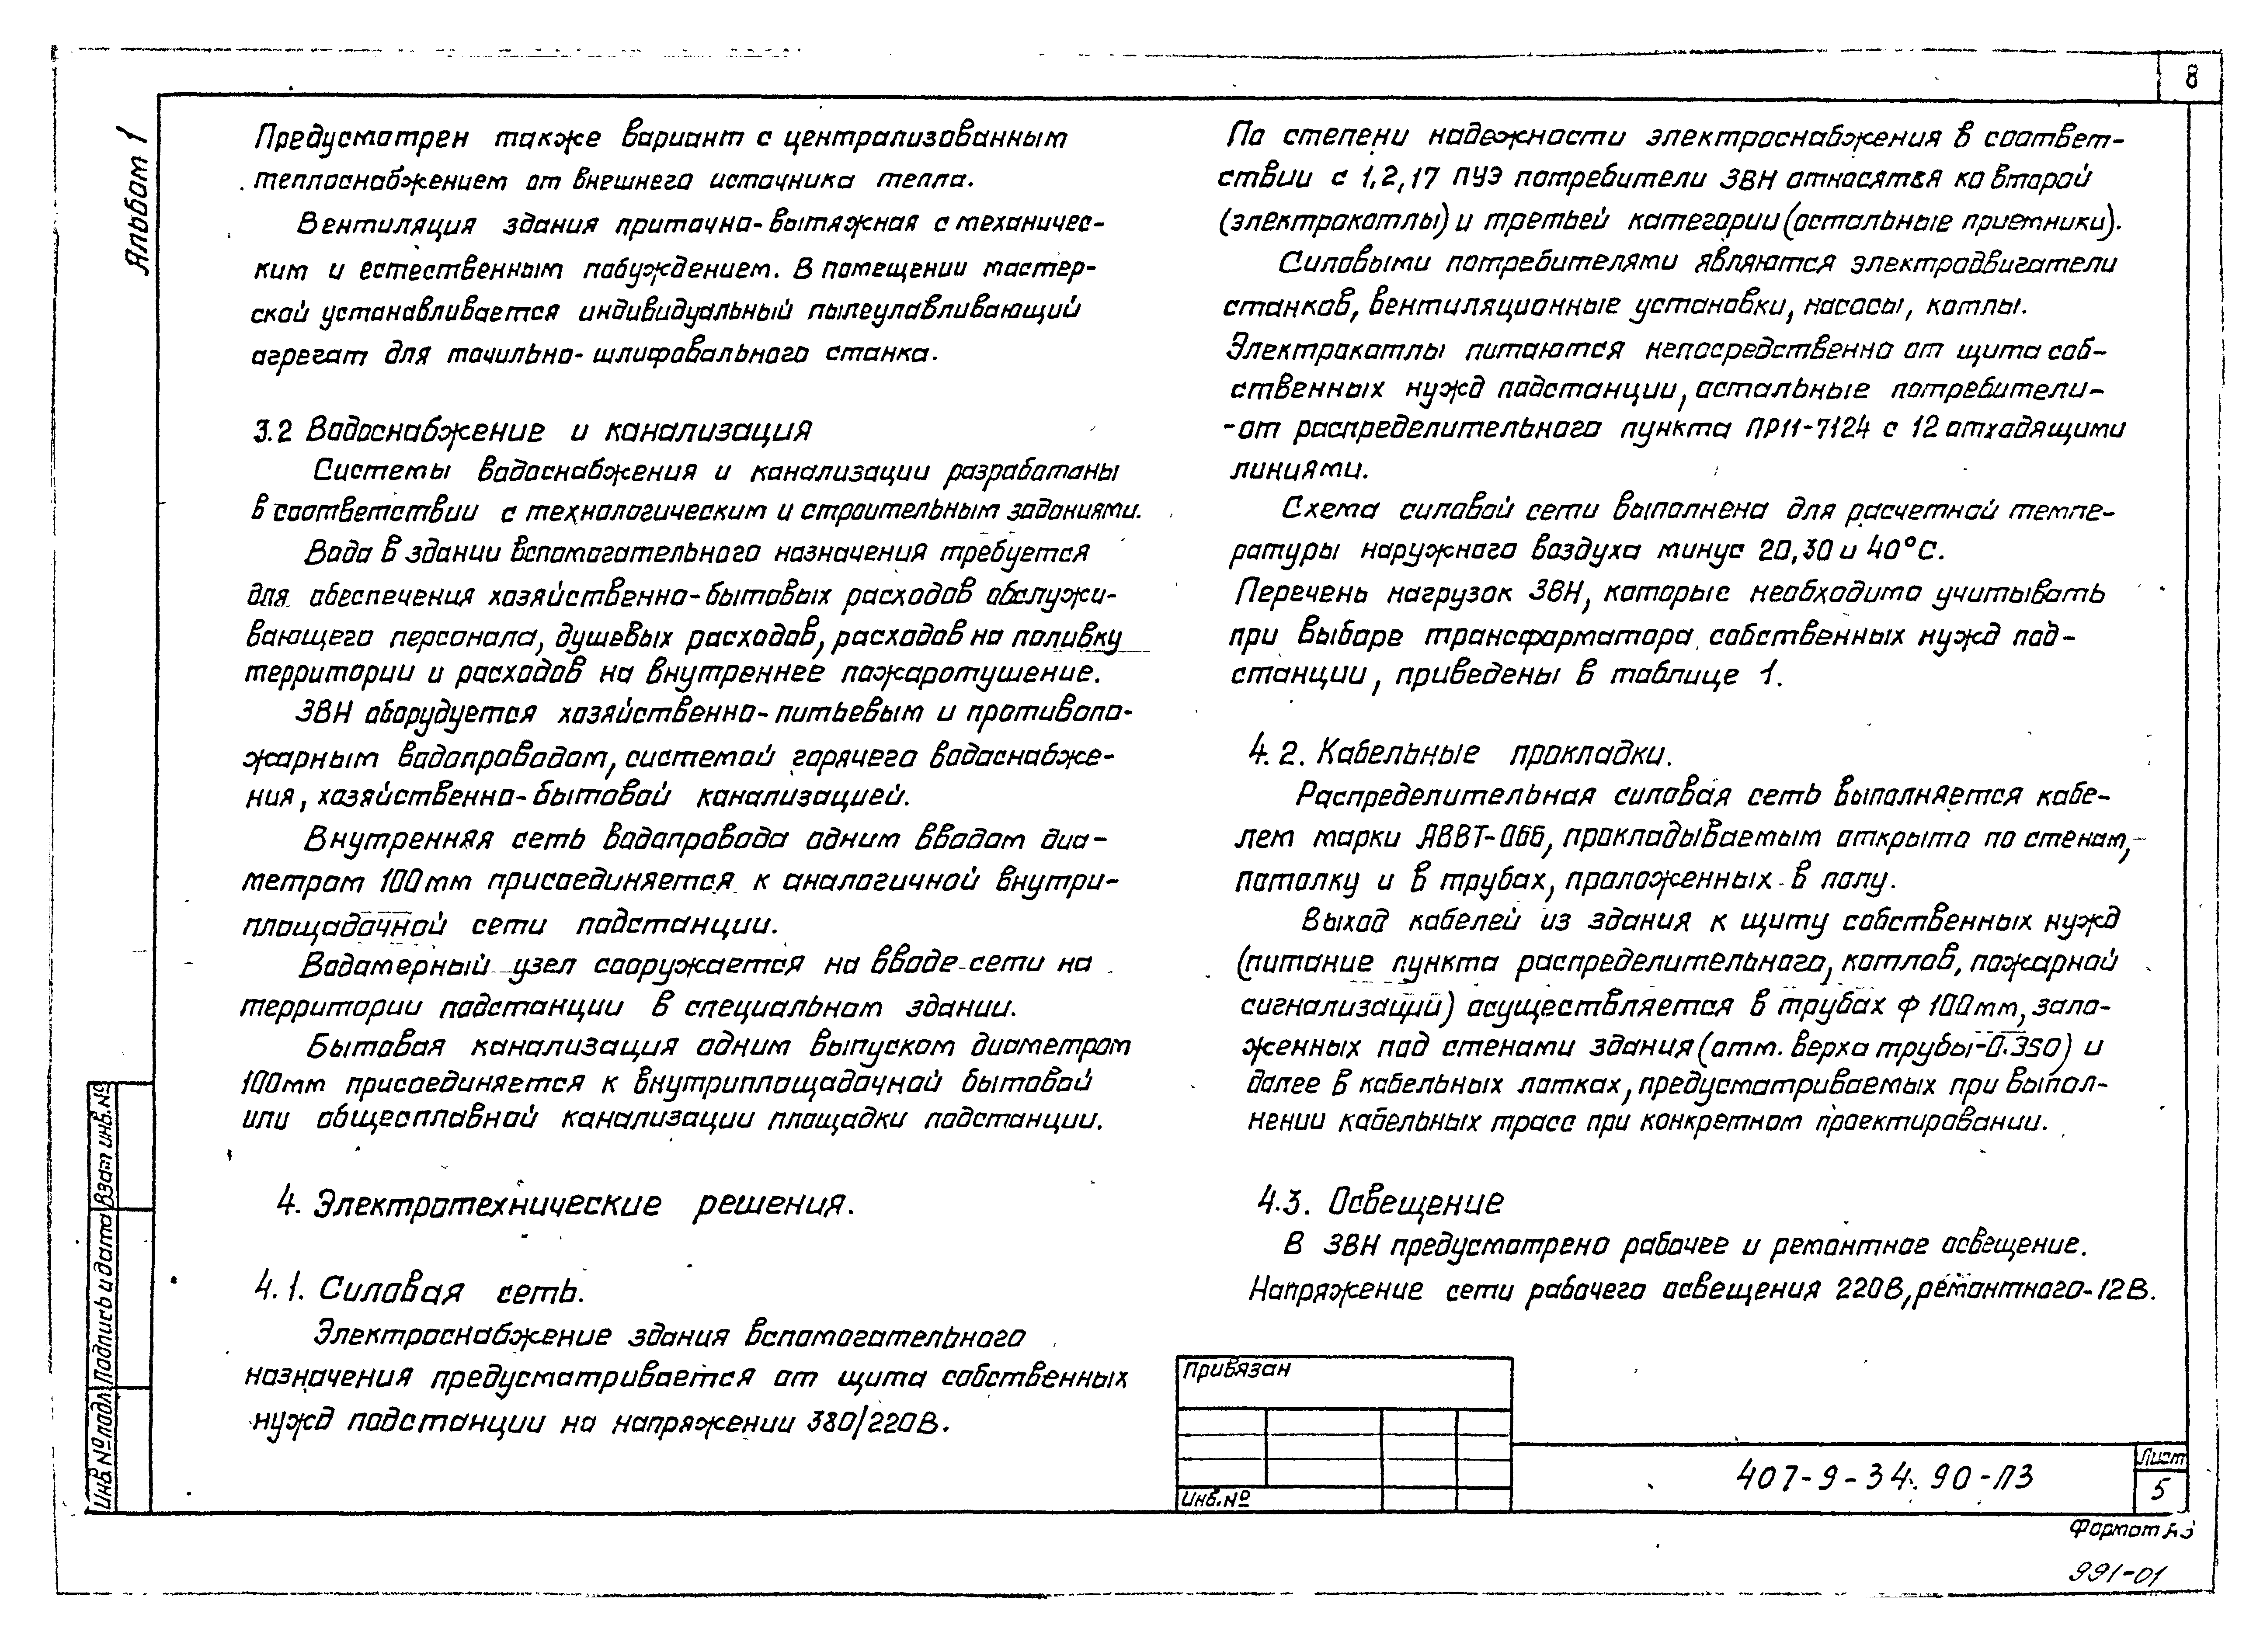 8
Альбом 1
Предусмотрен также вариант с централизованным
теплоснабжением от внешнего источника тепла.
Вентиляция здания приточно-вытяжная с механичес-
ким и естественным побуждением. В помещении мастер-
ской устанавливается индивидуальный пылеулавливающий
агрегат для точильно-шлифовального станка.
3.2 Водоснабжение и канализация
Системы водоснабжения и канализации разработаны
в соответствии с технологическим и строительным заданиями.
Вода в здании вспомогательного назначения требуется
для обеспечения хозяйственно-бытовых расходов обслужи-
вающего персонала, душевых расходов, расходов на поливку
территории и расходов на внутреннее пожаротушение.
ЗВН оборудуется хозяйственно-питьевым и противопо-
жарным водопроводом, системой горячего водоснабже-
ния, хозяйственно-бытовой канализацией.
Внутренняя сеть водопровода одним вводом диа-
метром 100мм присоединяется к аналогичной внутри-
площадочной сети подстанции.
Водомерный узел сооружается на вводе сети на
территории подстанции в специальном здании.
Бытовая канализация одним выпуском диаметром
100мм присоединяется к внутриплощадочной бытовой
или общесплавной канализации площадки подстанции.
4. Электротехнические решения.
4.1. Силовая сеть.
Электроснабжение здания вспомогательного
назначения предусматривается от щита собственных
нужд подстанции на напряжении 380/220В.
По степени надежности электроснабжения в соответ-
ствии с 1.2.17 ПУЭ потребители ЗВН относятся ко второй
(электрокотлы) и третьей категории (остальные приемники).
Силовыми потребителями являются электродвигатели
станков, вентиляционные установки, насосы, котлы.
Электрокотлы питаются непосредственно от щита соб-
ственных нужд подстанции, остальные потребители-
-от распределительного пункта ПР11-7124 с 12 отходящими
линиями.
Схема силовой сети выполнена для расчетной темпе-
ратуры наружного воздуха минус 20,30 и 40°С.
Перечень нагрузок ЗВН, которые необходимо учитывать
при выборе трансформатора собственных нужд под-
станции, приведены в таблице 1.
4.2. Кабельные прокладки.
Распределительная силовая сеть выполняется кабе-
лем марки АВВГ-066, прокладываемым открыто по стенам,
потолку и в трубах, проложенных в полу.
Выход кабелей из здания к щиту собственных нужд
(питание пункта распределительного, котлов, пожарной
сигнализации) осуществляется в трубах ф 100мм, зало-
женных под стенами здания (отм. верха трубы-0.350) и
далее в кабельных лотках, предусматриваемых при выпол-
нении кабельных трасс при конкретном проектировании.
4.3. Освещение
В ЗВН предусмотрено рабочее и ремонтное освещение.
Напряжение сети рабочего освещения 220В, ремонтного-12В.
Привязан
Инв.№
407-9-34.90-ПЗ
Лист
5
Формат А3
991-01
Взам инв.№
Подпись и дата
Инв.№подл